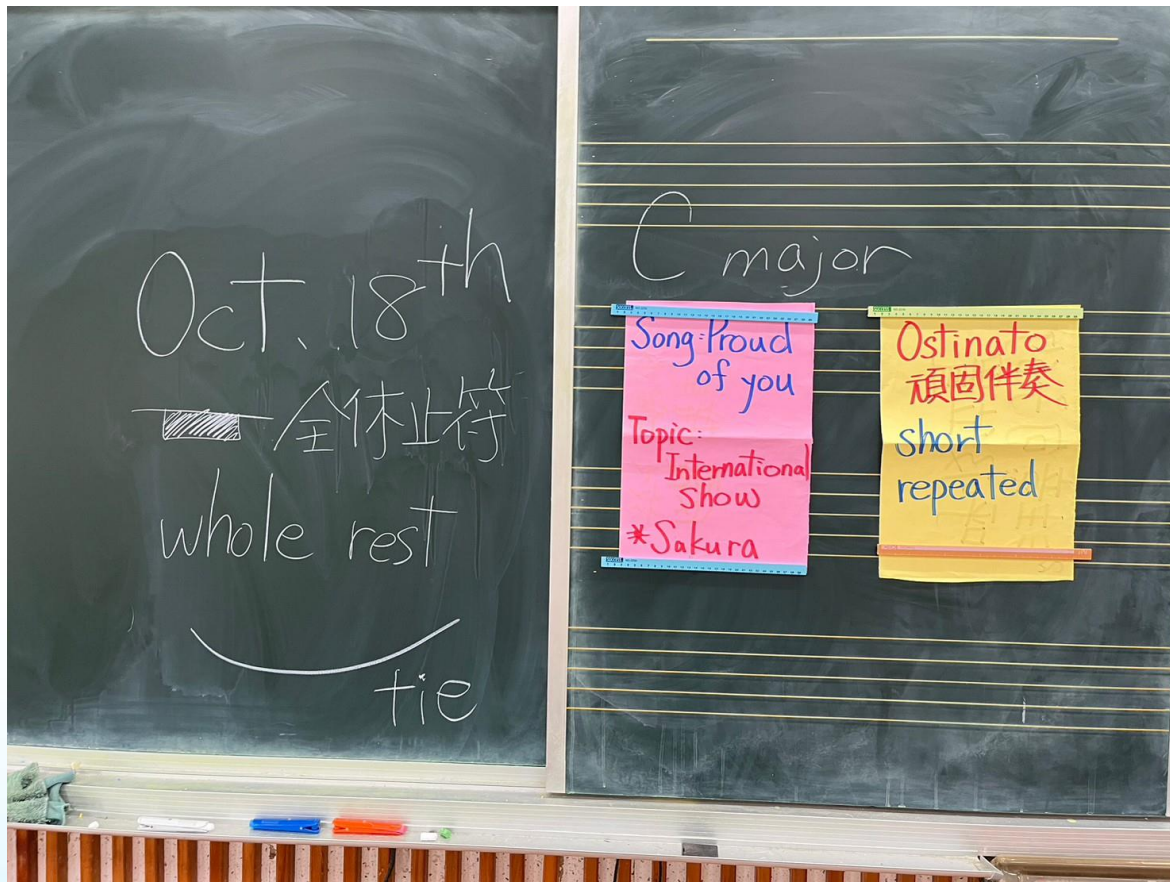 Oct. 18th
全休止符
whole rest
tie
C major
Song: Proud
of you
Topic:
International
show
*Sakura
Ostinato
頑固伴奏
short
repeated